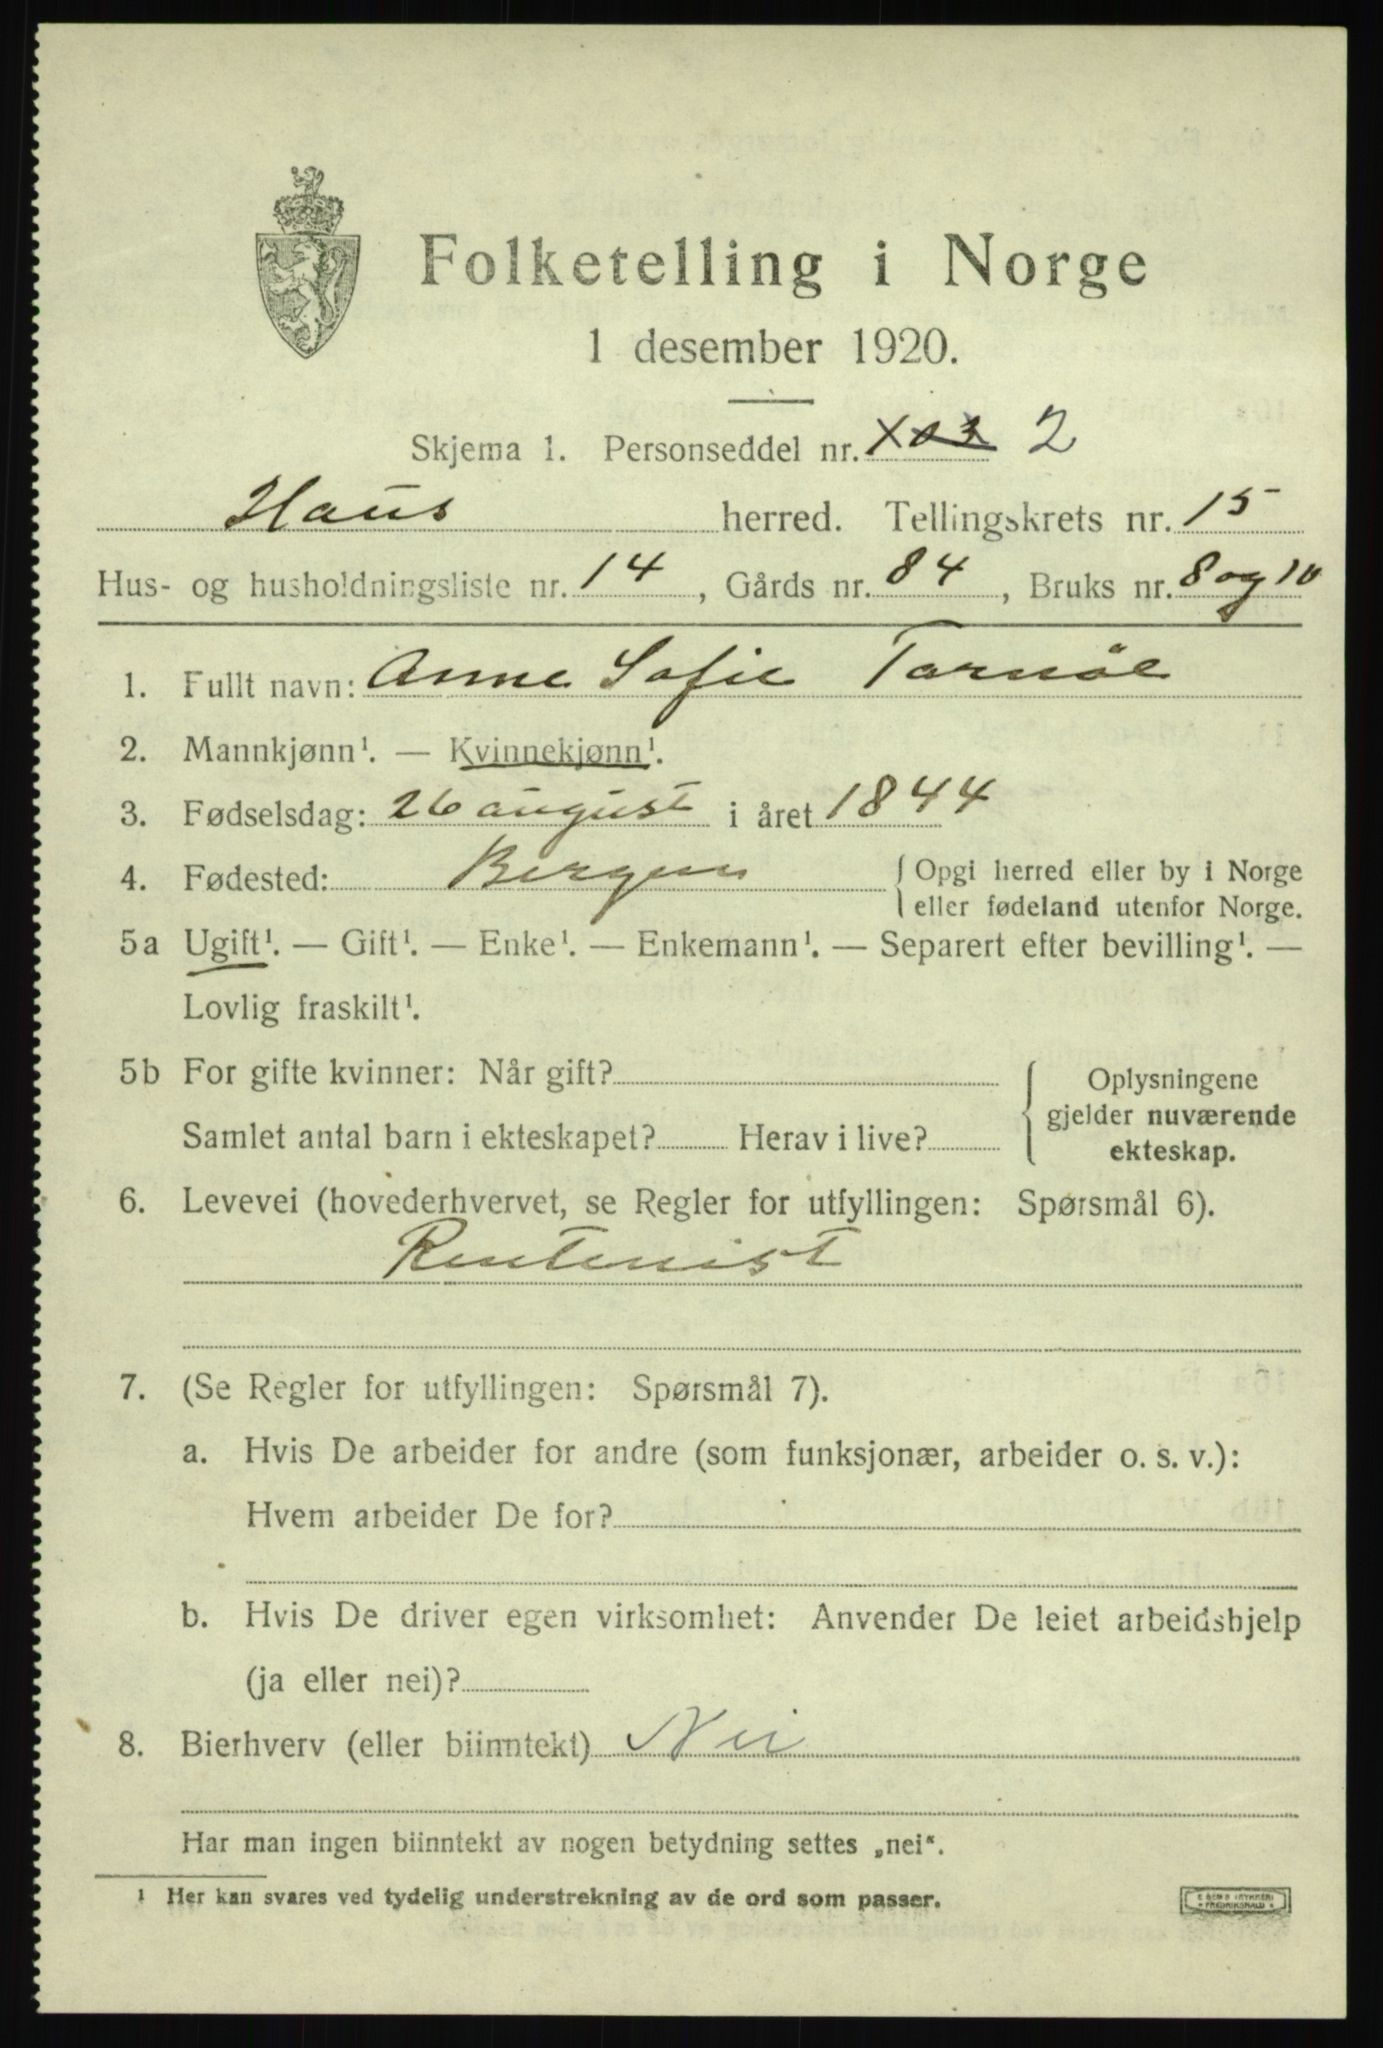 Folketelling i Norge
1 desember 1920.
Skjema 1. Personseddel nr. 2
Haus herred. Tellingskrets nr. 15
Hus- og husholdningsliste nr. 14, Gårds nr. 84, Bruks nr. 8 og 10
1. Fullt navn: Anne Sofie Tornöe
2. Mannkjønn¹. — Kvinnekjønn¹.
3. Fødselsdag: 26 august i året 1844
4. Fødested: Bergen { Opgi herred eller by i Norge
eller fødeland utenfor Norge.
5a Ugift¹. — Gift¹. — Enke¹. — Enkemann¹. — Separert efter bevilling¹. —
Lovlig fraskilt¹.
5b For gifte kvinner: Når gift? { Oplysningene
gjelder nuværende
Samlet antal barn i ekteskapet? Herav i live? ekteskap.
6. Levevei (hovederhvervet, se Regler for utfyllingen: Spørsmål 6).
Rentenist
7. (Se Regler for utfyllingen: Spørsmål 7).
a. Hvis De arbeider for andre (som funksjonær, arbeider o. s. v.):
Hvem arbeider De for?
b. Hvis De driver egen virksomhet: Anvender De leiet arbeidshjelp
(ja eller nei)?
8. Bierhverv (eller biinntekt) Nei
Har man ingen biinntekt av nogen betydning settes „nei“.
¹ Her kan svares ved tydelig understrekning av de ord som passer.